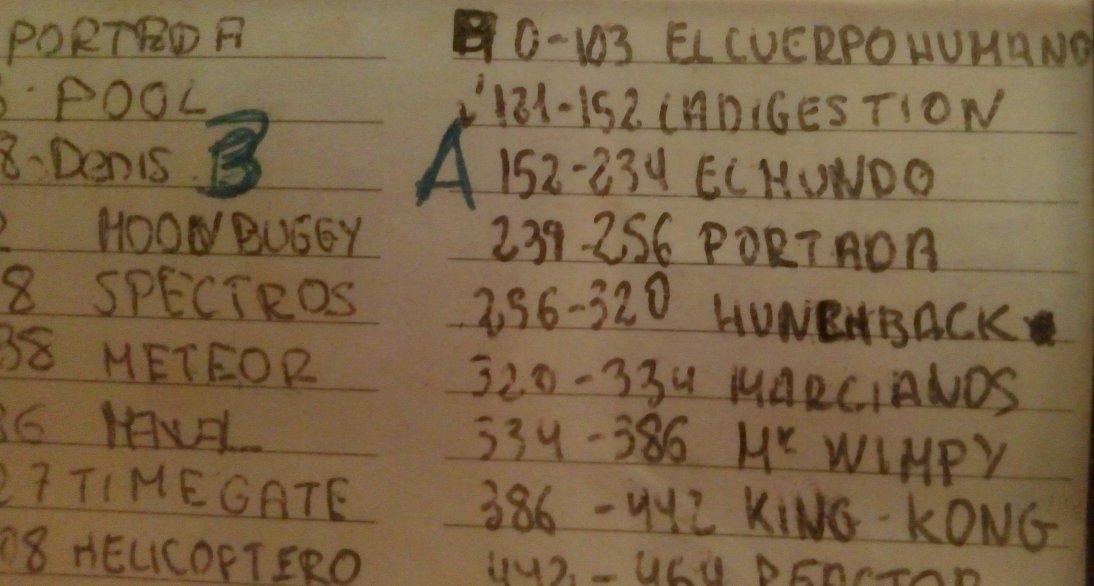 PORTADA
POOL
8-Denis B
MOON BUGGY
8 SPECTROS
38 METEOR
36
27 TIME GATE
08 HELICOPTERO
B 0-103 EL CUERPO HUMANO
121-152 LA DIGESTION
A 152-234 EL MUNDO
239-256 PORTADA
256-320 HUNCHBACK
320-334 MARCIANOS
334-386 Mr WIMPY
386-442 KING-KONG
442-464 REACTOR